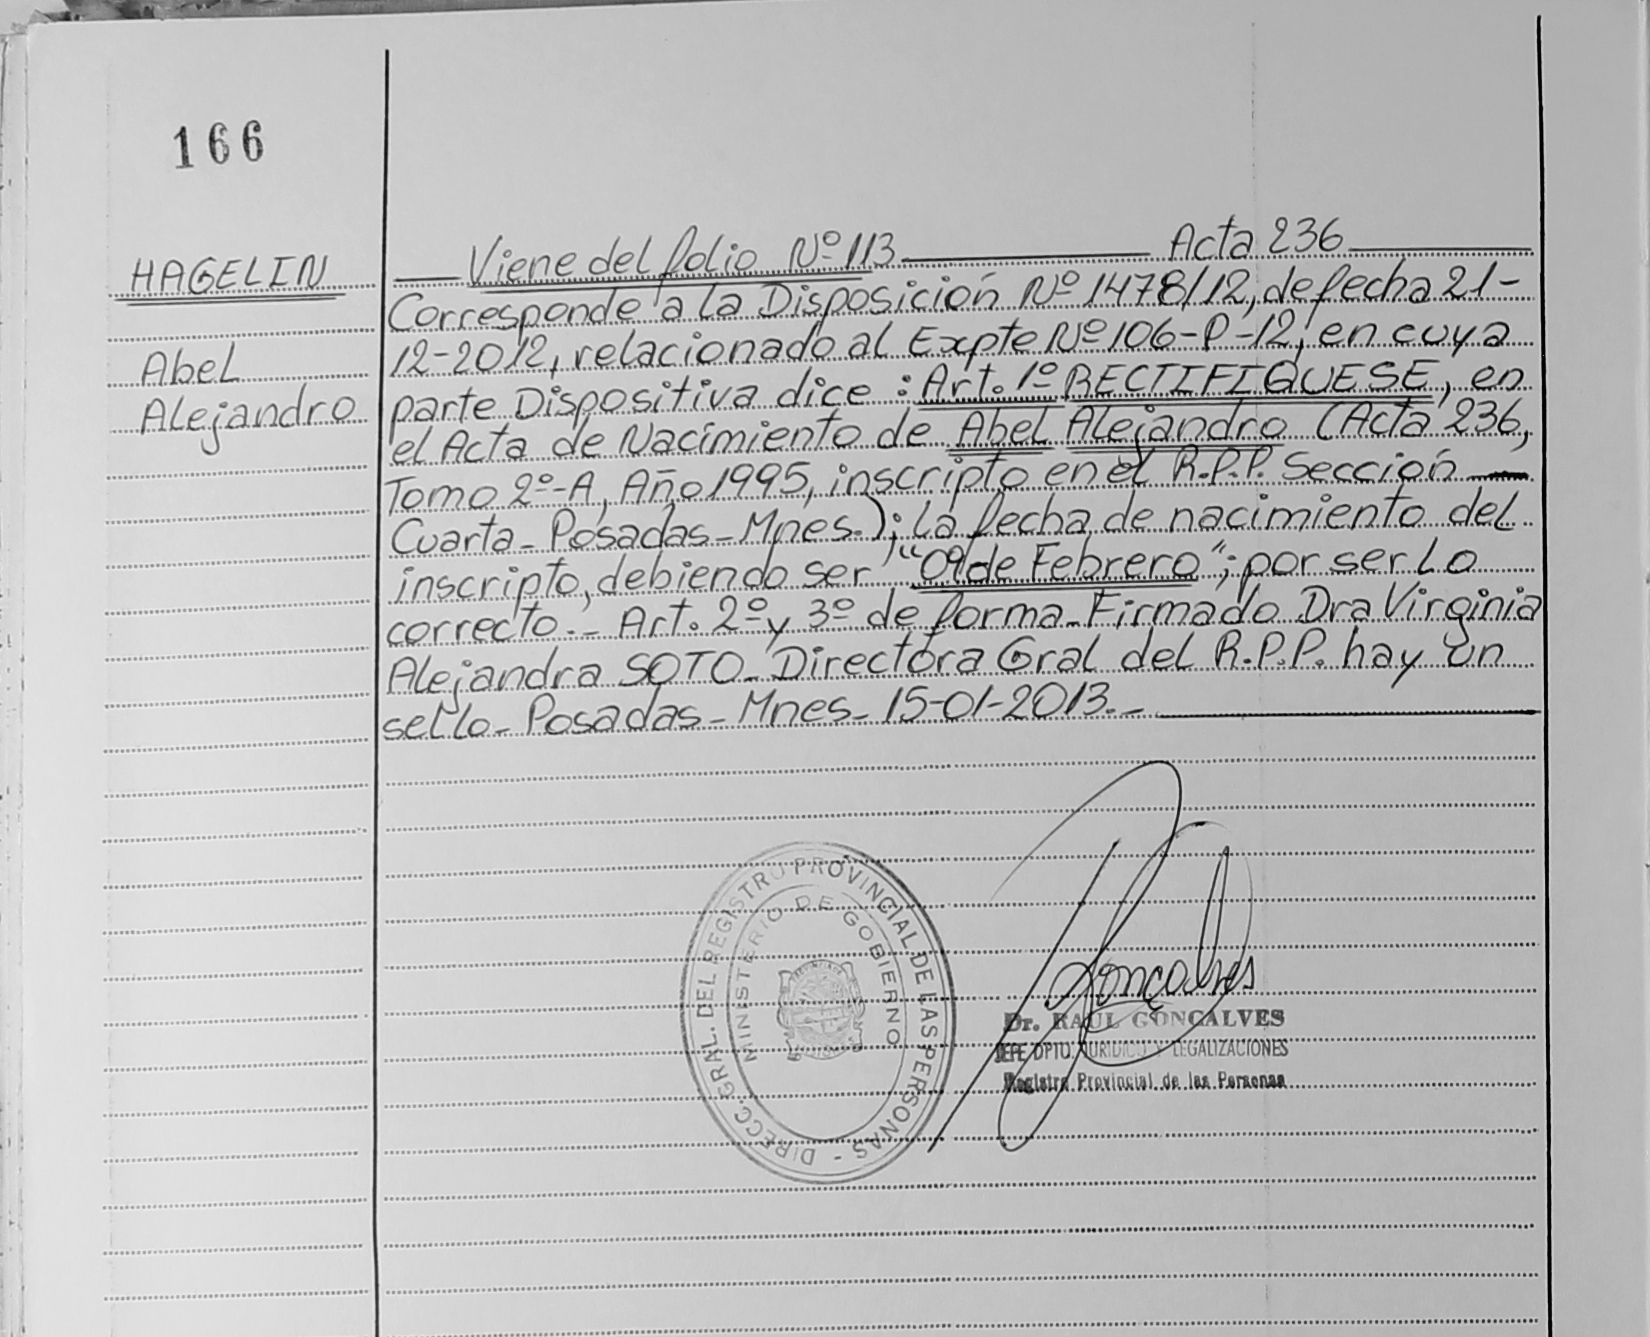 166
HAGELIN
Abel
Alejandro
Viene del folio Nº 113 Acta 236
Corresponde a la Disposición Nº 1478/12, de fecha 21-
12-2012, relacionado al Expte Nº 106-P-12, en cuya
parte Dispositiva dice: Art. 1º RECTIFIQUESE, en
el Acta de Nacimiento de Abel Alejandro (Acta 236,
Tomo 2º-A, Año 1995, inscripto en el R.P.P. Sección
Cuarta - Posadas - Mnes.); la fecha de nacimiento del
inscripto, debiendo ser "09 de Febrero"; por ser lo
correcto.- Art. 2º y 3º de forma - Firmado Dra Virginia
Alejandra SOTO - Directora Gral del R.P.P. hay un
sello - Posadas - Mnes - 15-01-2013.-
DIRECC. GRAL. DEL REGISTRO PROVINCIAL DE LAS PERSONAS -
MINISTERIO DE GOBIERNO
Gonçalves
Dr. RAUL GONCALVES
JEFE DPTO. JURIDICO Y LEGALIZACIONES
Registro Provincial de las Personas